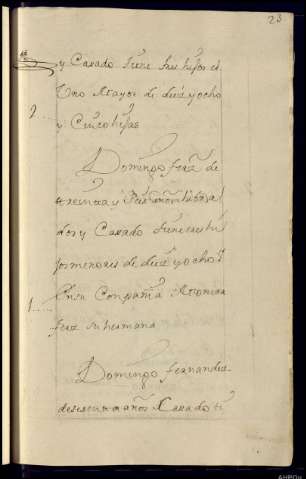 23
y Casado tiene tres hijos el
Uno Mayor de diez y ocho
2
y Cinco hijas
Domingo fern.z de
treinta y seis años labra
dor y Casado tiene tres hi
jos menores de diez y ocho
1
En su Compañia
fern.z su hermana
Domingo fernandez
de sesenta años Casado ti
AHPOU